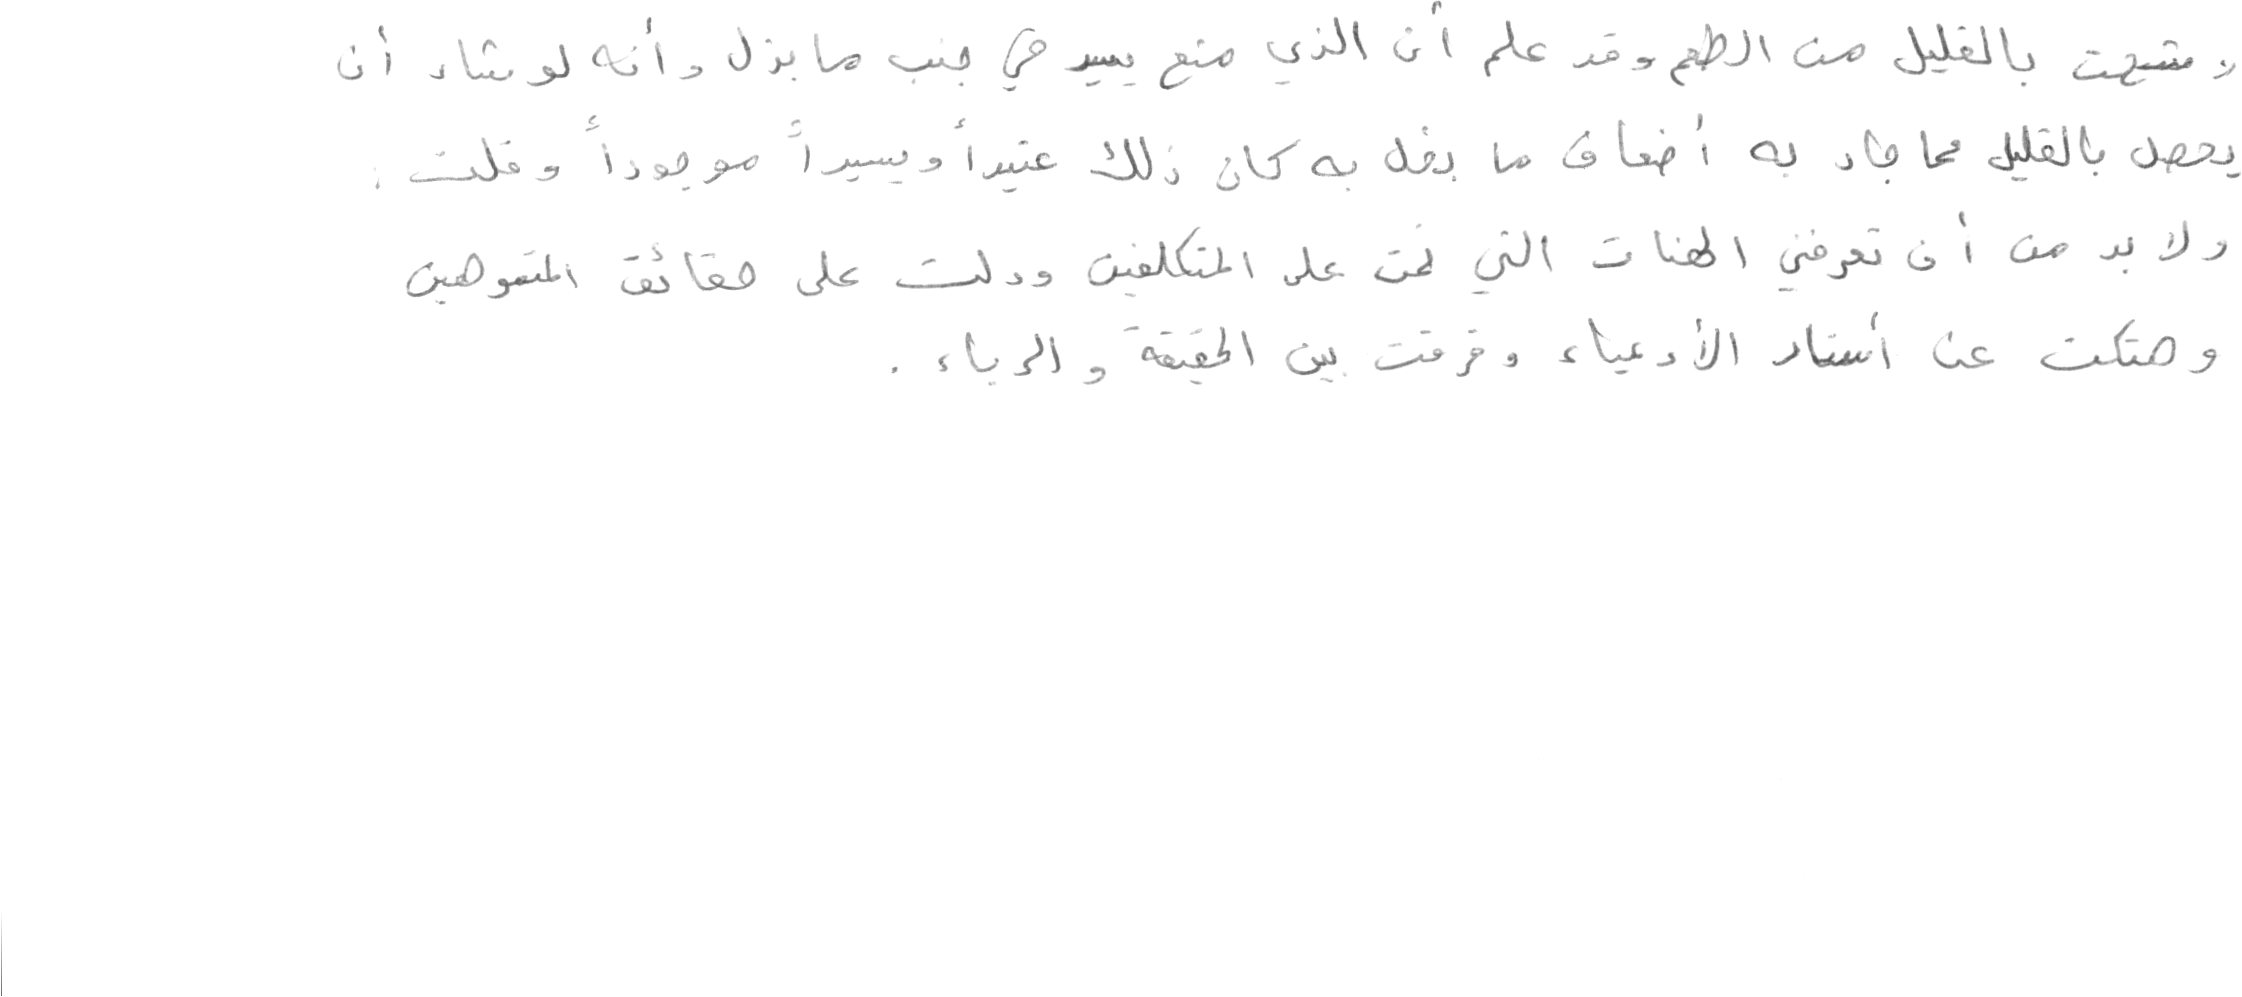 وتشحت بالقليل من الطعم وقد علم أن الذي منع يسير في جنب ما بذل وأنه لو شاء أن
يحصل بالقليل مما جاد به أضعاف ما بخل به كان ذلك عتيداً ويسيراً موجوداً وقلت :
ولا بد من أن تعرفني الهنات التي نمت على المتكلفين ودلت على حقائق المتموهين
وهتكت عن أستار الأدعياء وفرقت بين الحقيقة والرياء .